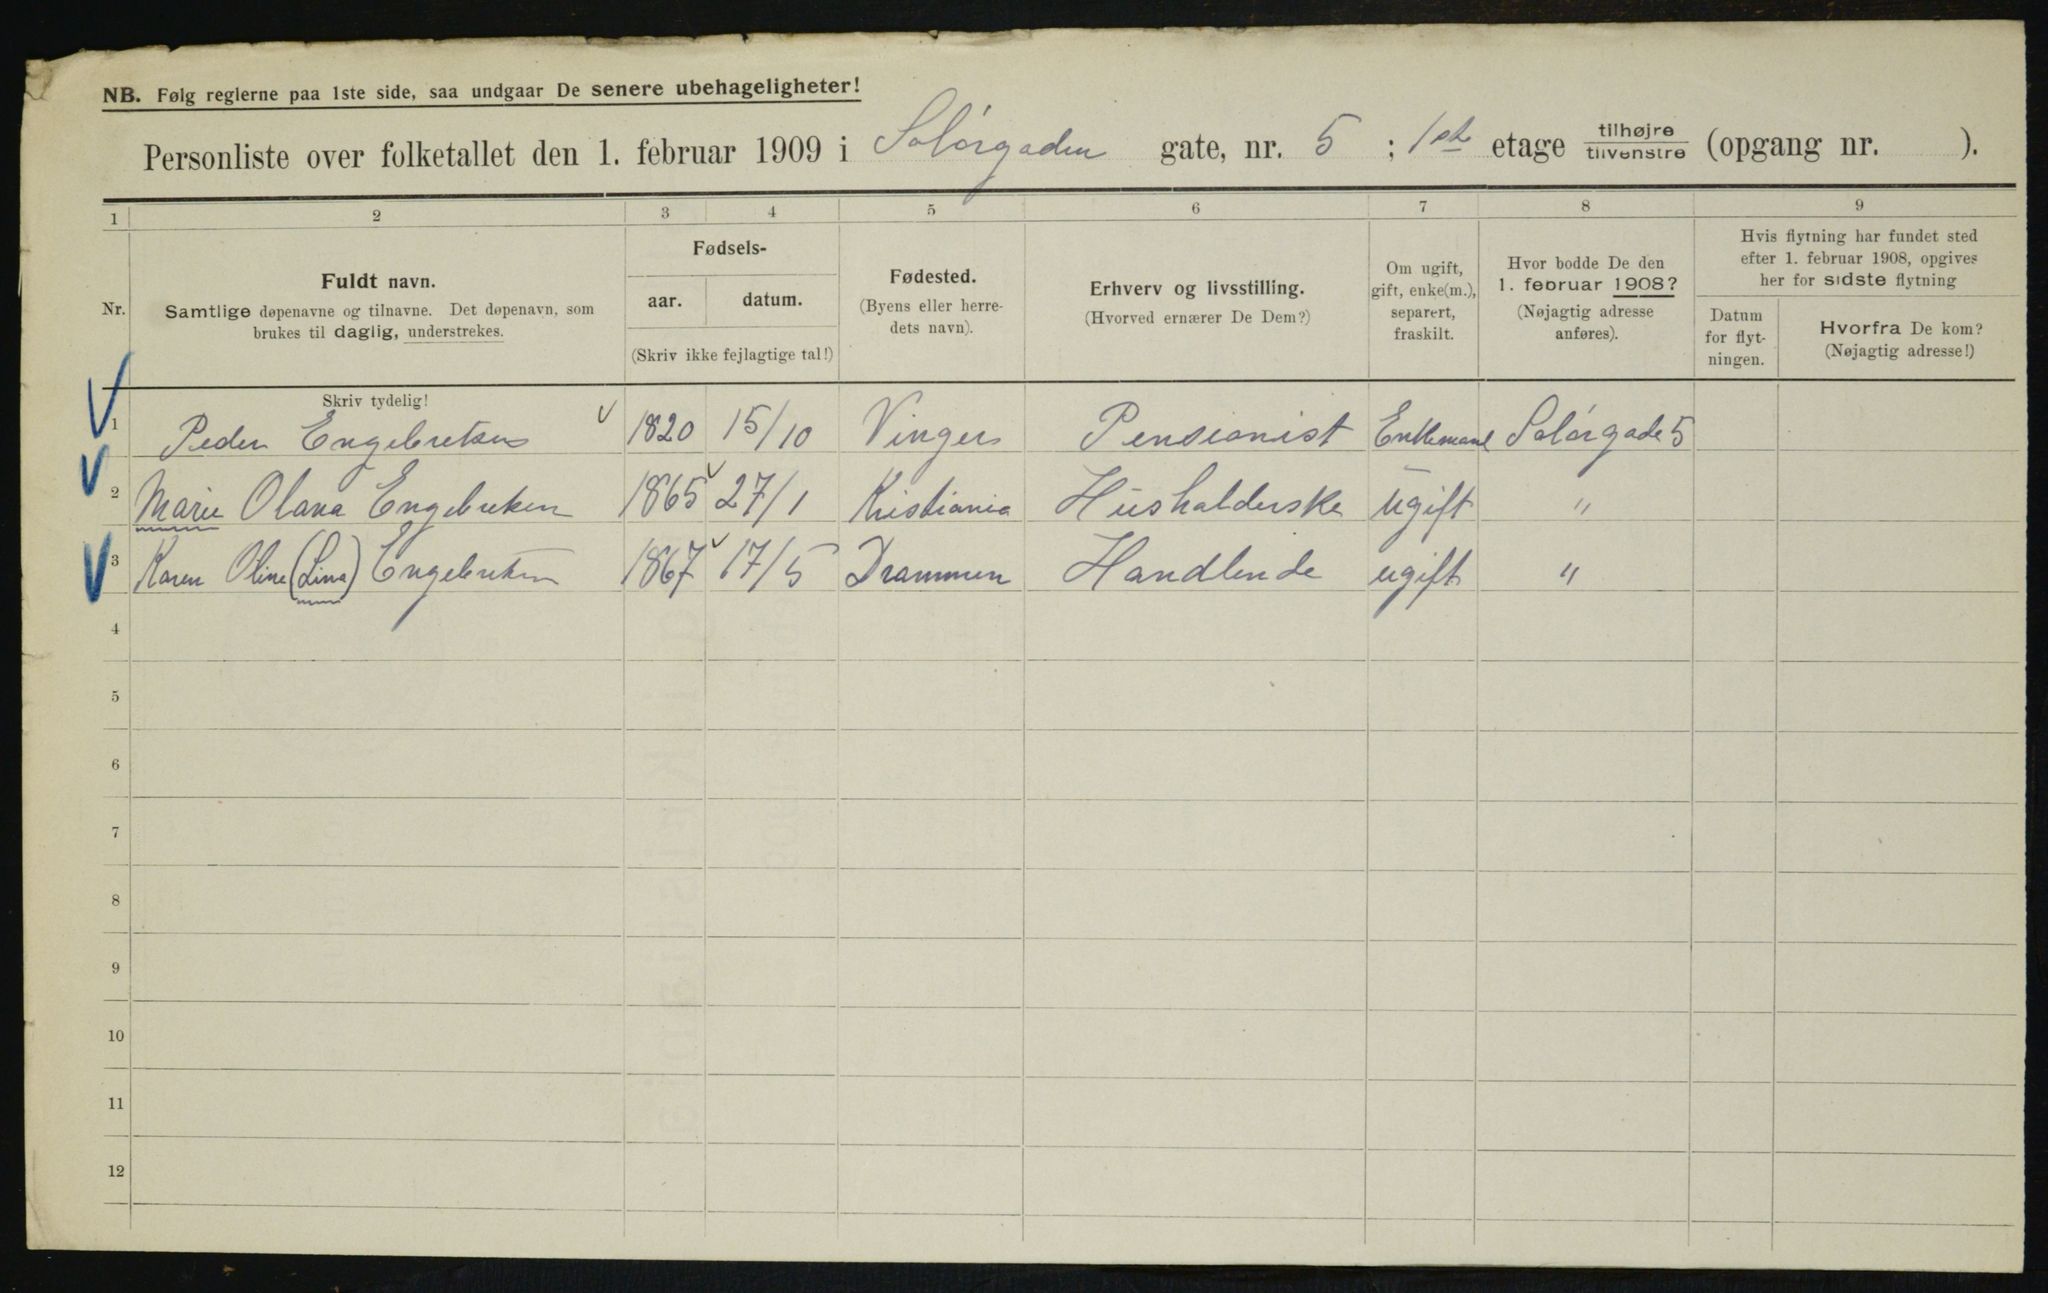 NB. Følg reglerne paa 1ste side, saa undgaar De senere ubehageligheter!
Personliste over folketallet den 1. februar 1909 i Solørgaden gate, nr. 5 ; 1ste etage tilhøjre tilvenstre (opgang nr. ).
1 2 3 4 5 6 7 8 9
Nr.
Fuldt navn.
Samtlige døpenavne og tilnavne. Det døpenavn, som
brukes til daglig, understrekes.
Fødsels-
aar. datum.
(Skriv ikke fejlagtige tal!)
Fødested.
(Byens eller herre-
dets navn).
Erhverv og livsstilling.
(Hvorved ernærer De Dem?)
Om ugift,
gift, enke(m.),
separert,
fraskilt.
Hvor bodde De den
1. februar 1908?
(Nøjagtig adresse
anføres).
Hvis flytning har fundet sted
efter 1. februar 1908, opgives
her for sidste flytning
Datum
for flyt-
ningen.
Hvorfra De kom?
(Nøjagtig adresse!)
Skriv tydelig!
1 Peder Engebretsen 1820 15/10 Vinger Pensionist Enkemand Solørgade 5
2 Marie Olava Engebretsen 1865 27/1 Kristiania Husholderske ugift "
3 Karen Oline (Lina) Engebretsen 1867 17/5 Drammen Handlende ugift "
4
5
6
7
8
9
10
11
12